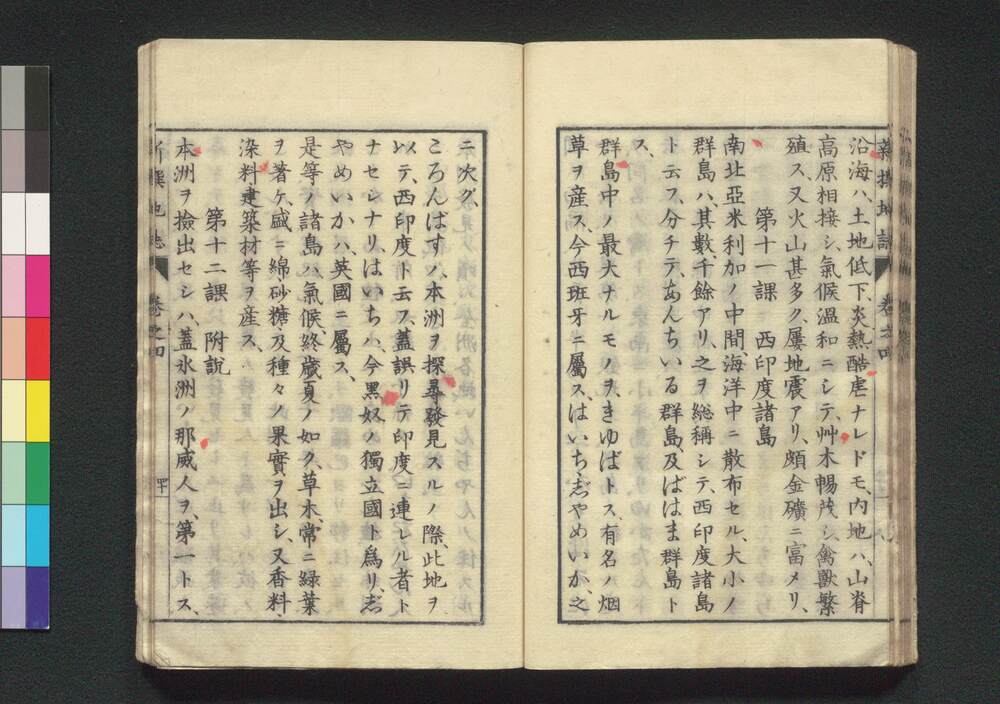 沿海ハ、土地低下、炎熱酷虐ナレドモ內地ハ、山脊
高原相接シ、氣候溫和ニシテ、艸木暢茂シ、禽獸繁
殖ス、又火山甚多ク、屢地震アリ、頗金礦ニ富メリ、
第十一課 西印度諸島
南北亞米利加ノ中間、海洋中ニ散布セル、大小ノ
群島ハ、其數、千餘アリ、之ヲ總稱シテ、西印度諸島
ト云フ、分チテ、あんちいる群島、及ばはま群島ト
ス、
群島中ノ最大ナルモノヲ、きゆばトス、有名ノ烟
草ヲ産ス、今西班牙ニ屬ス、はいち、志やめいか、之
新撰地誌 卷之四
ニ次グ、
ころんばすノ、本洲ヲ探尋發見スルノ際此地ヲ
以テ、西印度ト云フ、蓋誤リテ印度ニ連レル者ト
ナセシナリ、はいちハ、今黑奴ノ獨立國ト爲リ、志
やめいかハ、英國ニ屬ス、
是等ノ諸島ハ、氣候、終歲夏ノ如ク、草木、常ニ綠葉
ヲ著ケ、盛ニ綿、砂糖、及種々ノ果實ヲ出シ、又香料、
染料、建築材等ヲ産ス、
第十二課 附說
本洲ヲ撿出セシハ、蓋氷洲ノ那威人ヲ、第一トス、
新撰地誌 卷之四